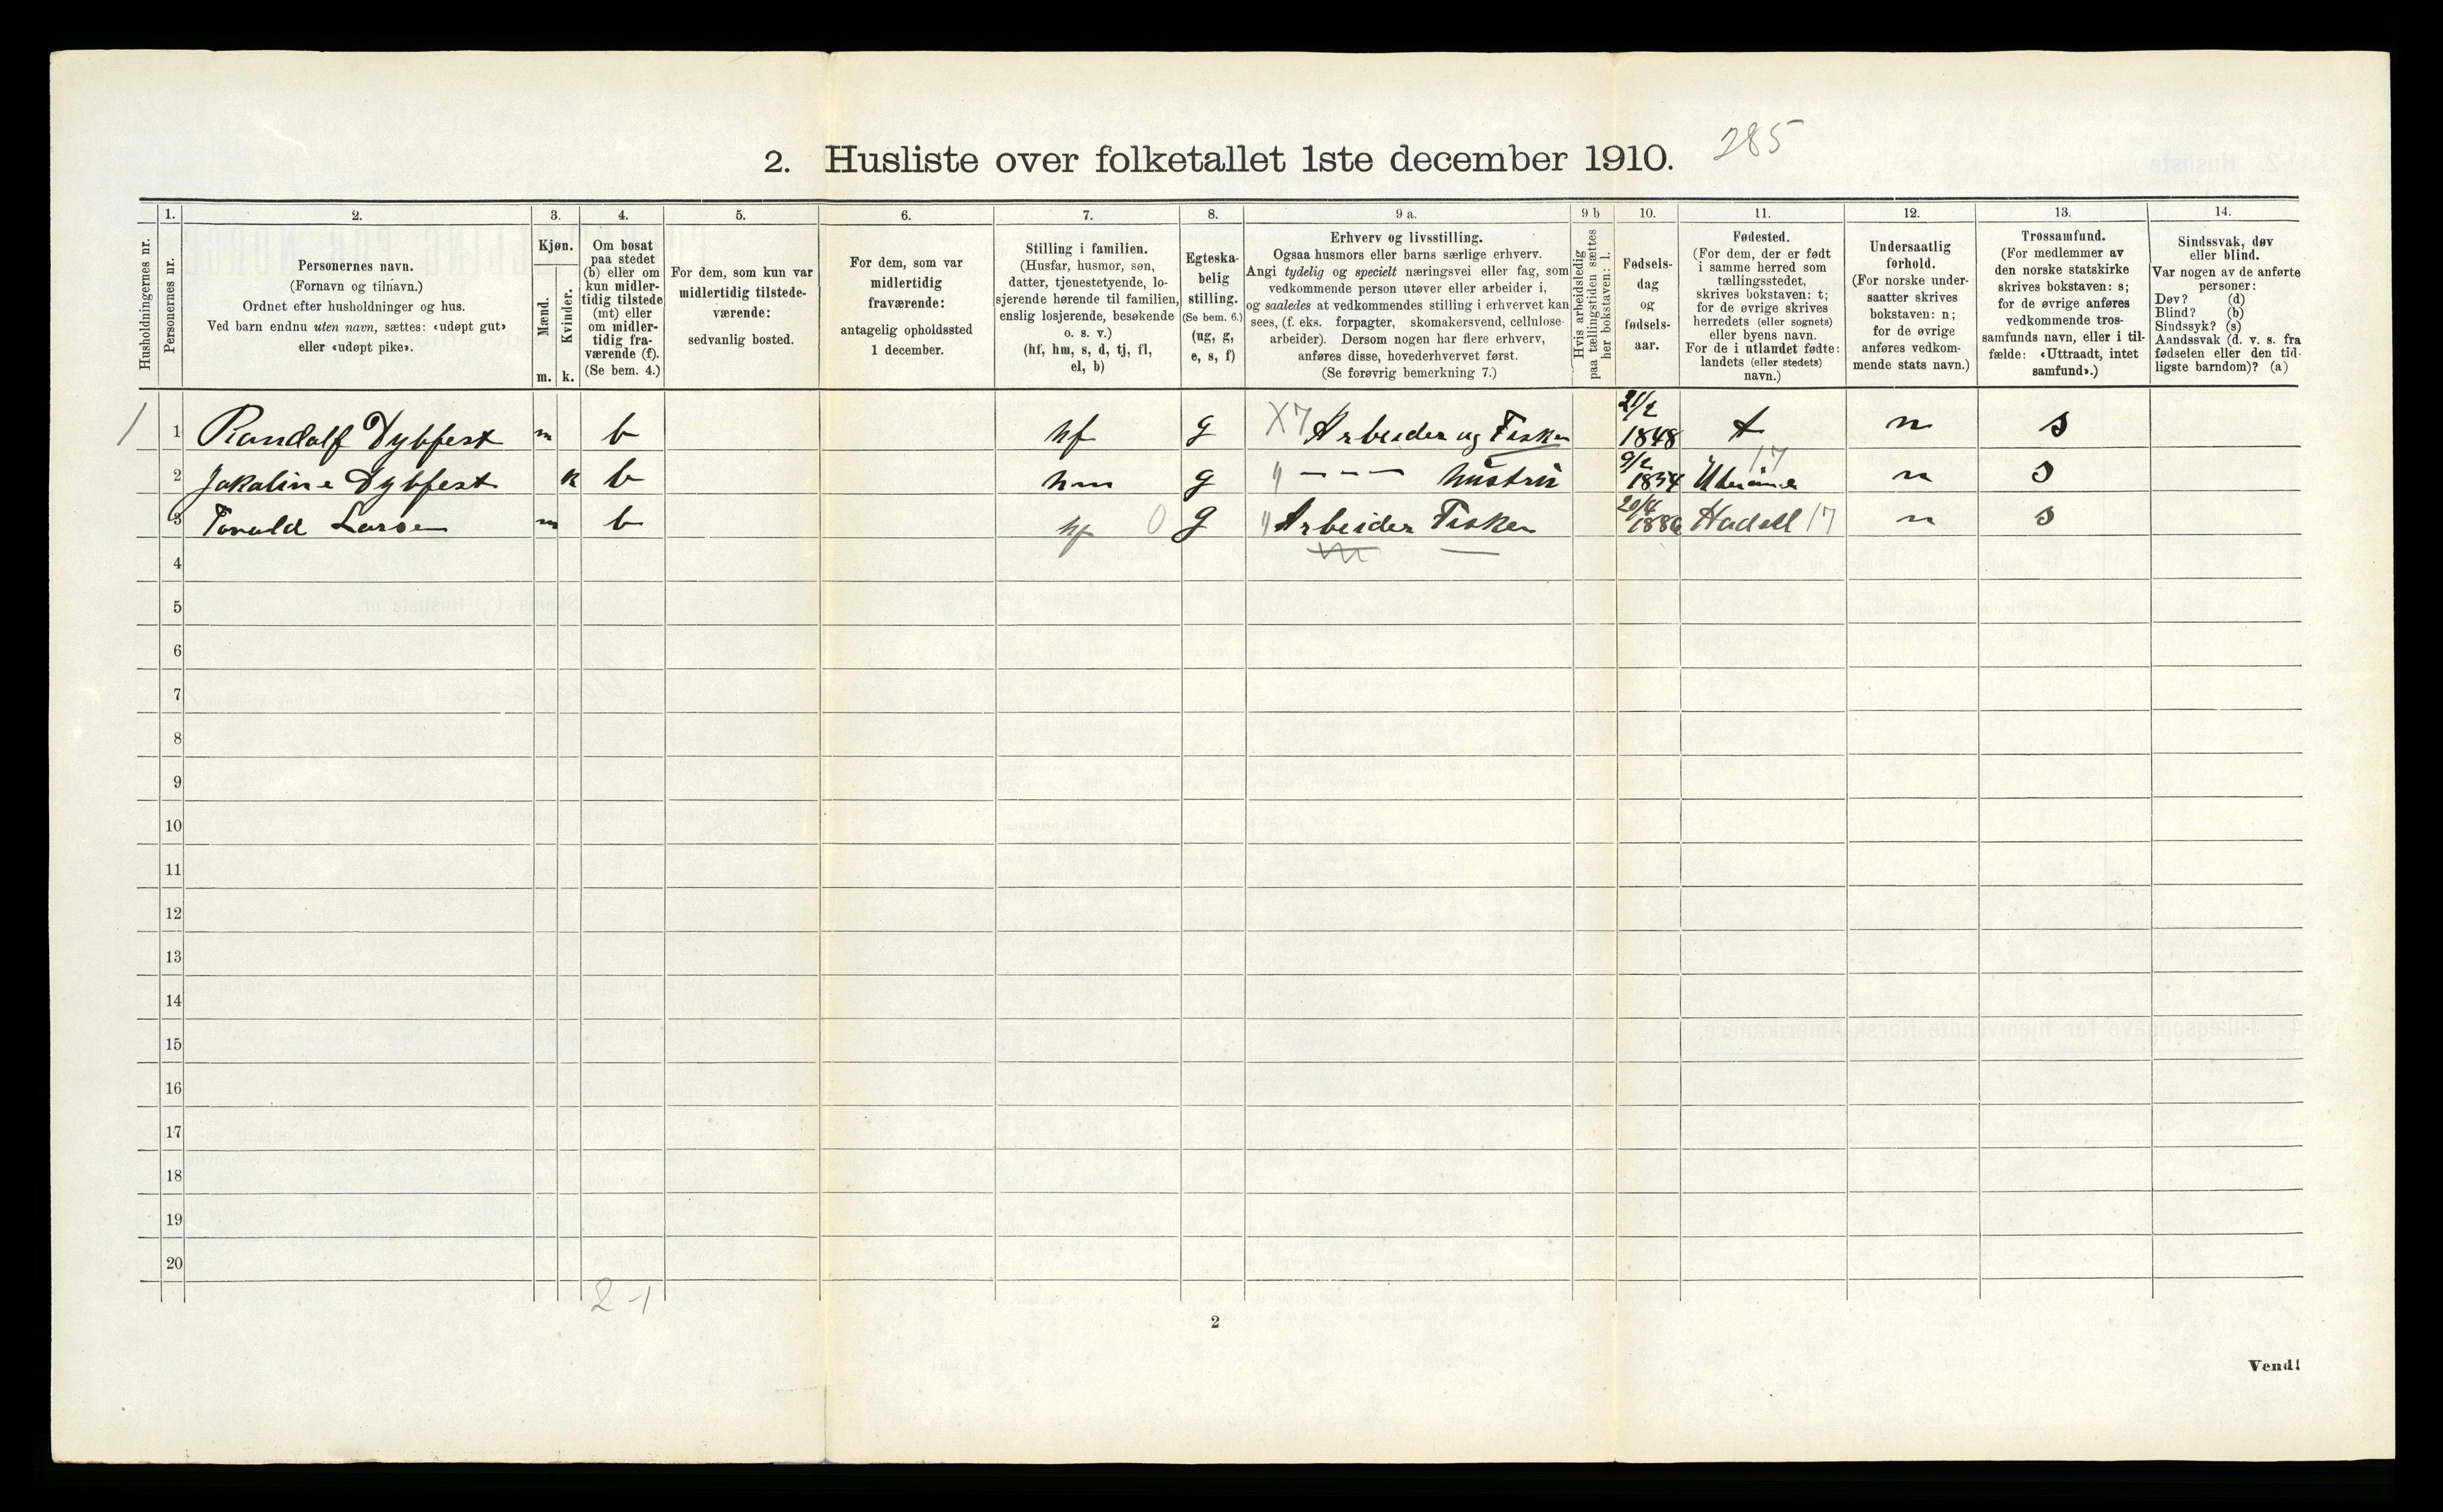 2. Husliste over folketallet 1ste december 1910. 285
Husholdningernes nr.
1.
Personernes nr.
2.
Personernes navn.
(Fornavn og tilnavn.)
Ordnet efter husholdninger og hus.
Ved barn endnu uten navn, sættes: «udøpt gut»
eller «udøpt pike».
3.
Kjøn.
Mænd.
m.
Kvinder.
k.
4.
Om bosat
paa stedet
(b) eller om
kun midler-
tidig tilstede
(mt) eller
om midler-
tidig fra-
værende (f).
(Se bem. 4.)
5.
For dem, som kun var
midlertidig tilstede-
værende:
sedvanlig bosted.
6.
For dem, som var
midlertidig
fraværende:
antagelig opholdssted
1 december.
7.
Stilling i familien.
(Husfar, husmor, søn,
datter, tjenestetyende, lo-
sjerende hørende til familien,
enslig losjerende, besøkende
o. s. v.)
(hf, hm, s, d, tj, fl,
el, b)
8.
Egteska-
belig
stilling.
(Se bem. 6.)
(ug, g,
e, s, f)
9 a.
Erhverv og livsstilling.
Ogsaa husmors eller barns særlige erhverv.
Angi tydelig og specielt næringsvei eller fag, som
vedkommende person utøver eller arbeider i,
og saaledes at vedkommendes stilling i erhvervet kan
sees, (f. eks. forpagter, skomakersvend, cellulose-
arbeider). Dersom nogen har flere erhverv,
anføres disse, hovederhvervet først.
(Se forøvrig bemerkning 7.)
9 b
Hvis arbeidsledig
paa tællingstiden sættes
her bokstaven: l.
10.
Fødsels-
dag
og
fødsels-
aar.
11.
Fødested.
(For dem, der er født
i samme herred som
tællingsstedet,
skrives bokstaven: t;
for de øvrige skrives
herredets (eller sognets)
eller byens navn.
For de i utlandet fødte:
landets (eller stedets)
navn.)
12.
Undersaatlig
forhold.
(For norske under-
saatter skrives
bokstaven: n;
for de øvrige
anføres vedkom-
mende stats navn.)
13.
Trossamfund.
(For medlemmer av
den norske statskirke
skrives bokstaven: s;
for de øvrige anføres
vedkommende tros-
samfunds navn, eller i til-
fælde: «Uttraadt, intet
samfund».)
14.
Sindssvak, døv
eller blind.
Var nogen av de anførte
personer:
Døv? (d)
Blind? (b)
Sindssyk? (s)
Aandssvak (d. v. s. fra
fødselen eller den tid-
ligste barndom)? (a)
1 1 Randolf Dybfest m b hf g X7 Arbeider og Fisker 21/2 1848 t n s
2 Jakoline Dybfest k b hm g " - - - hustru 9/2 1854 17 n s
3 Torald Larsen m b hf 0 g " Arbeider Fisker 20/4 1886 Hadsel 17 n s
4
5
6
7
8
9
10
11
12
13
14
15
16
17
18
19
20
2-1
2
Vend!